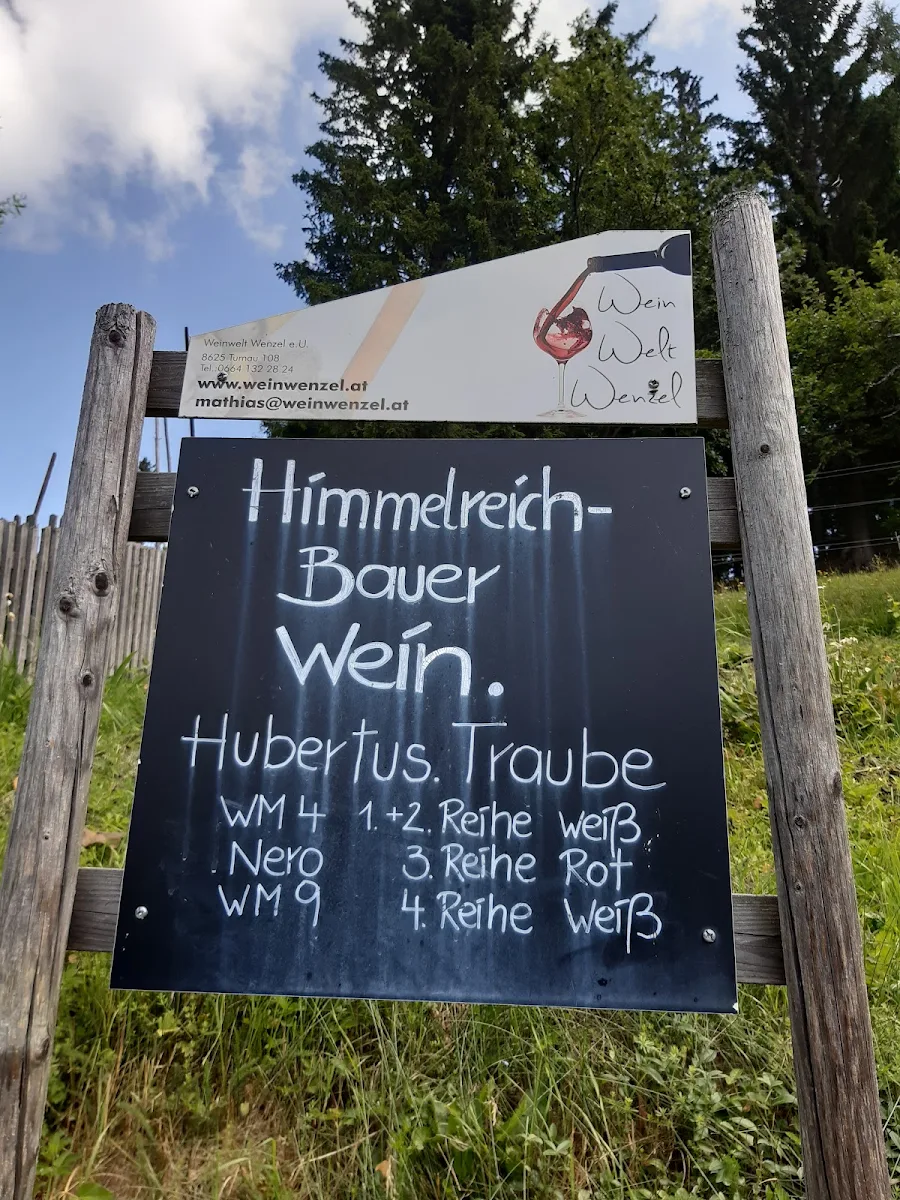 Weinwelt Wenzel e.U.
8625 Turnau 108
Tel.:0664 132 28 24
www.weinwenzel.at
mathias@weinwenzel.at
Wein
Welt
Wenzel
Himmelreich-
Bauer
Wein.
Hubertus. Traube
WM 4 1.+2. Reihe weiß
Nero 3. Reihe Rot
WM 9 4. Reihe weiß